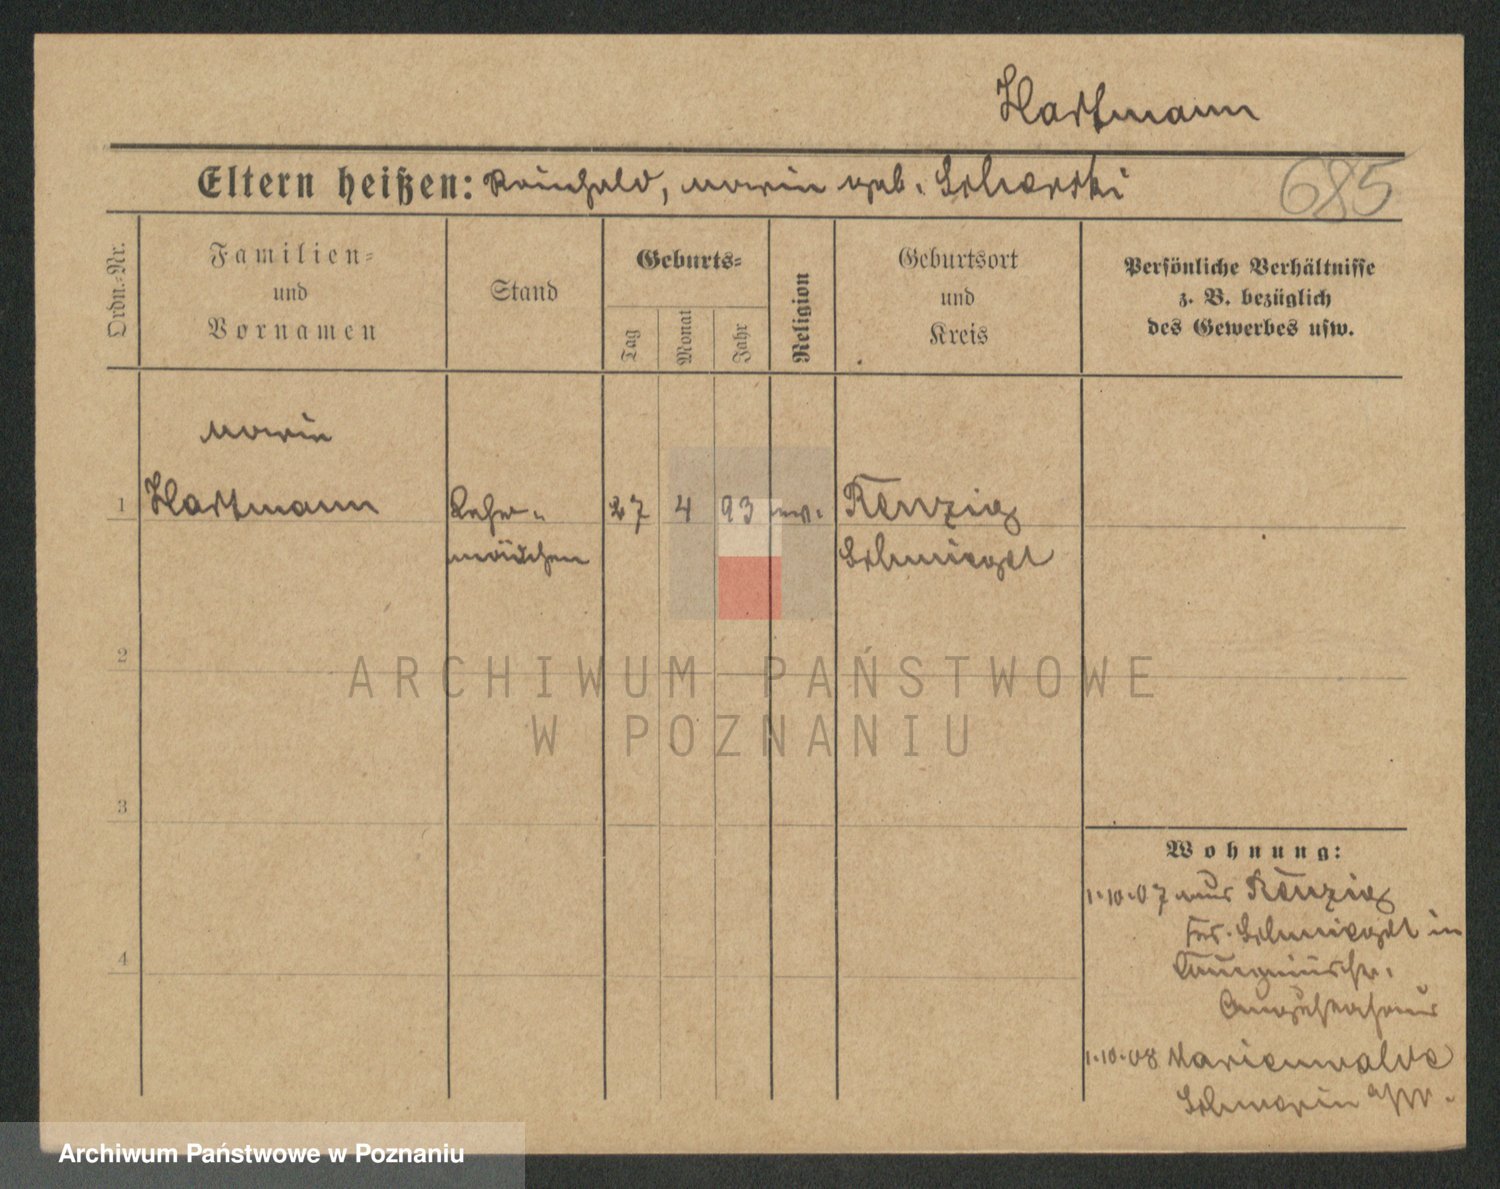 Hartmann
Eltern heißen: Reinhold, Marie geb. Scheroski
685
Ordn.=Nr.
Familien=
und
Vornamen
Stand
Geburts=
Tag
Monat
Jahr
Religion
Geburtsort
und
Kreis
Persönliche Verhältnisse
z. B. bezüglich
des Gewerbes usw.
Marie
1 Hartmann Lehr- 27 4 93 ev. Renzig
mädchen Schmiegel
2
ARCHIWUM PAŃSTWOWE
W POZNANIU
3
Wohnung:
1.10.07 aus Renzig
Krs. Schmiegel in
4
1.10.08 Marienwalde
Schwerin a/W.
Archiwum Państwowe w Poznaniu